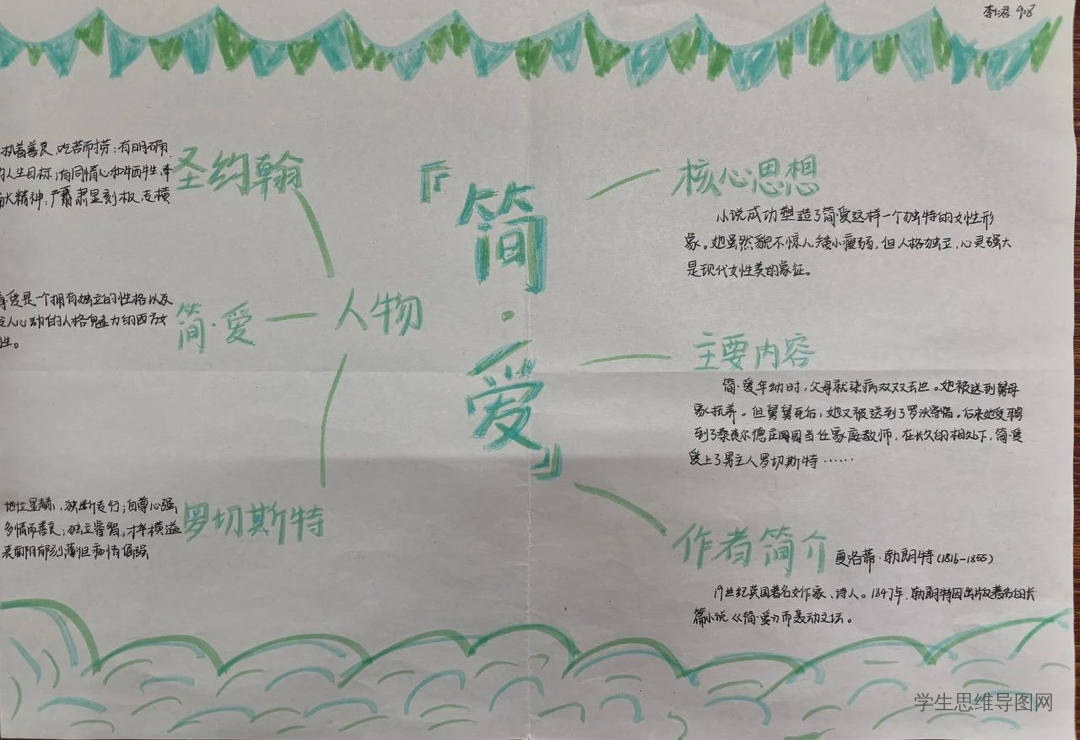 李仁君 9.8
『简·爱』
人物
圣约翰
执着善良、吃苦耐劳;有明确
的人生目标;有同情心和牺牲奉
献精神;严肃呈刻板、专横
简·爱
简爱是一个拥有独立的性格以及
人心动的人格魅力的西方女
性。
罗切斯特
地位显赫、独断专行;自尊心强
多情而善良;独立睿智,才华横溢
表面阴郁刻薄但痴情倔强
核心思想
小说成功塑造了简爱这样一个独特的女性形
象。她虽然貌不惊人,矮小瘦弱,但人格独立,心灵强大
是现代女性美的象征。
主要内容
简·爱年幼时,父母就染病双双去世。她被送到舅母
家抚养。但舅舅死后,她又被送到了罗沃学校。后来她受聘
到了桑菲尔德庄园当任家庭教师,在长久的相处下,简·爱
爱上了男主人罗切斯特……
作者简介
夏洛蒂·勃朗特(1816-1855)
19世纪英国著名女作家、诗人。1847年,勃朗特因出版著名的长
篇小说《简·爱》而轰动文坛。
学生思维导图网